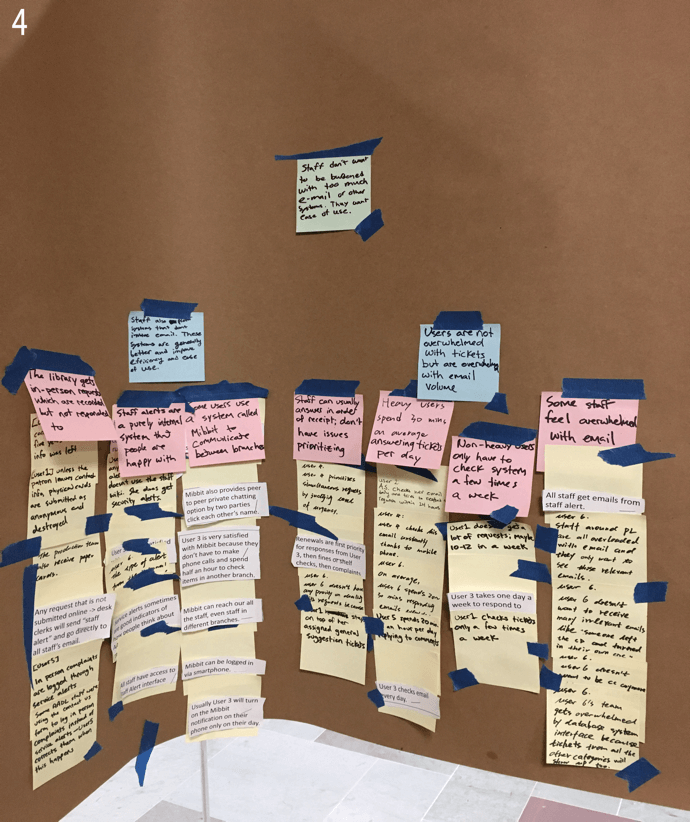 4
Staff don't want
to be burdened
with too much
e-mail or other
systems. They want
ease of use.
Staff also
systems that dont
involve email. These
systems are generally
better and improve
efficiency and ease
of use.
Users are not
overwhelmed
with tickets
but are overwhelmed
with email
volume
The library gets
in-person requests
which are recorded
but not responded
to
info was left
[User1] unless the
patron leaves contact
info, physical cards
are submitted as
anonymous and
destroyed
who receive paper
cards.
Any request that is not
submitted online -> desk
clerks will send "staff
alert" and go directly to
all staff's email.
[User3]
In person complaints
are logged through
service alerts.
Some staff were
using the contact us
form to log in person
complaints instead of
service alerts - User3
corrects them when
this happens
Staff alerts are
a purely internal
system that
people are
happy with
doesn't use the staff
wiki. She does get
security alerts.
user 6
the type of alert
alerts sometimes
are good indicators of
how people think about
All staff have access to
Staff Alert interface
some users use
a system called
Mibbit to
communicate
between branches
Mibbit also provides peer
to peer private chatting
option by two parties
click each other's name.
User 3 is very satisfied
with Mibbit because they
don't have to make
phone calls and spend
half an hour to check
items in another branch.
Mibbit can reach our all
the staff, even staff in
different branches.
Mibbit can be logged in
via smartphone.
Usually User 3 will turn
on the Mibbit
notification on their
phone only on their day
Staff can usually
answer in order
of receipt; don't
have issues
prioritizing
user 4.
user 4 prioritizes
simultaneous requests
by
of urgency.
Renewals are first priority
for responses from User
3, then fines or shelf
checks, then complaints
user 6.
user 6 doesn't have
any priority in
on top of her
assigned general
suggestion tickets
Heavy users
spend 30 mins
on average
answering tickets
per day
user 4.
user 4 checks his
email constantly
thanks to mobile
phone.
user 6.
on average,
user 6 spends 20
to mins responding
emails
User 5 spends 20
an hour per day
replying to comments
User 3 checks email
every day.
Non-heavy users
only have to
check system
a few times
a week
User1 does get a
lot of requests, maybe
10-12 in a week
User 3 takes one day
a week to respond to
User1 checks tickets
only a few times
a week
Some staff
feel overwhelmed
with email
All staff get emails from
staff alert.
user 6.
staff around PL
are all overloaded
with email and
they only want to
see those relevant
emails.
user 6.
user 6 doesn't
want to receive
many irrelevant emails
like "someone left
the cd and turned
in their own one".
user 6.
user 6 doesn't
want to be CC anymore
user 6.
user 6's team
gets overwhelmed
by database system
interface because
tickets from all the
other categories will
show